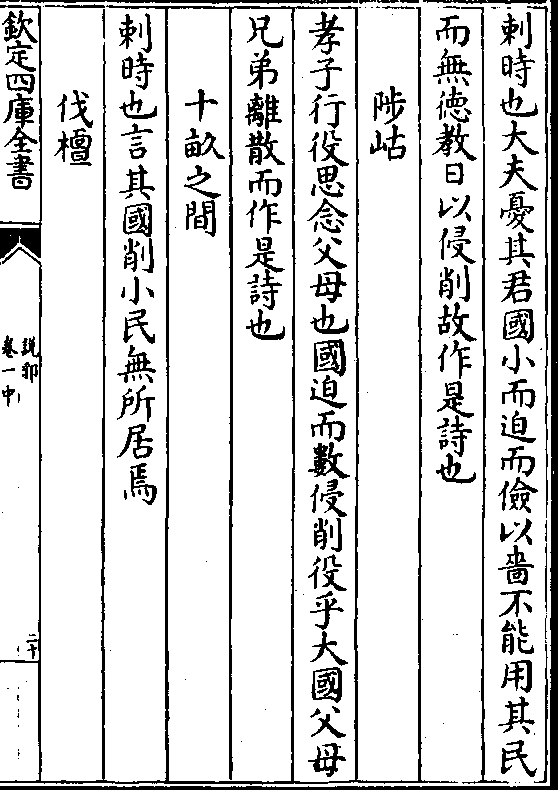 刺時也大夫憂其君國小而迫而儉以嗇不能用其民
而無徳教日以侵削故作是詩也
陟岵
孝子行役思念父母也國迫而數侵削役乎大國父母
兄弟離散而作是詩也
十畝之間
刺時也言其國削小民無所居焉
伐檀
欽定四庫全書
說郛
卷一中
二十